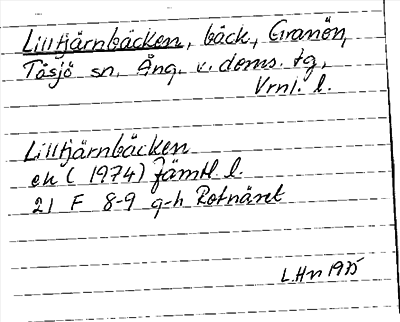 Lilltjärnbäcken, bäck, Granön,
Tåsjö sn. Ång. v. doms. tg,
Vrnl. l.
Lilltjärnbäcken
ek (1974) Jämtl l.
21 F 8-9 g-h Rotnäset
L.Hn 1975